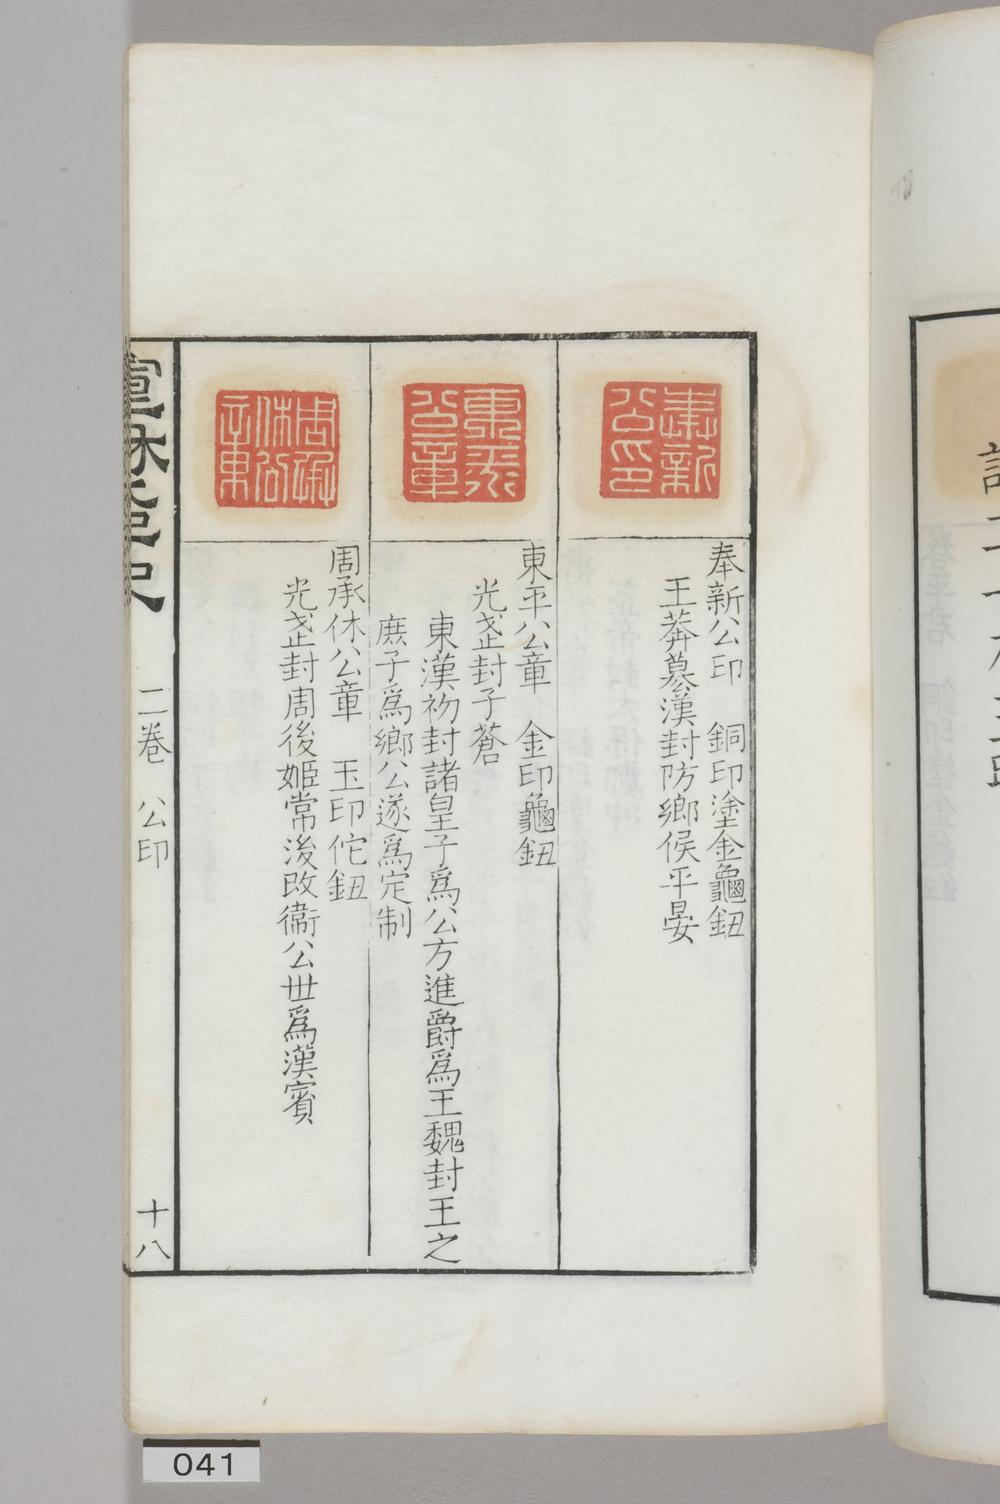 奉新公印
奉新公印 銅印塗金龜鈕
王莽篡漢封防鄉侯平晏
東平公章
東平公章 金印龜鈕
光武封子蒼
東漢初封諸皇子爲公方進爵爲王魏封王之
庶子爲鄉公遂爲定制
周承休公章
周承休公章 玉印佗鈕
光武封周後姬常後改衞公世爲漢賓
二卷 公印
十八
041